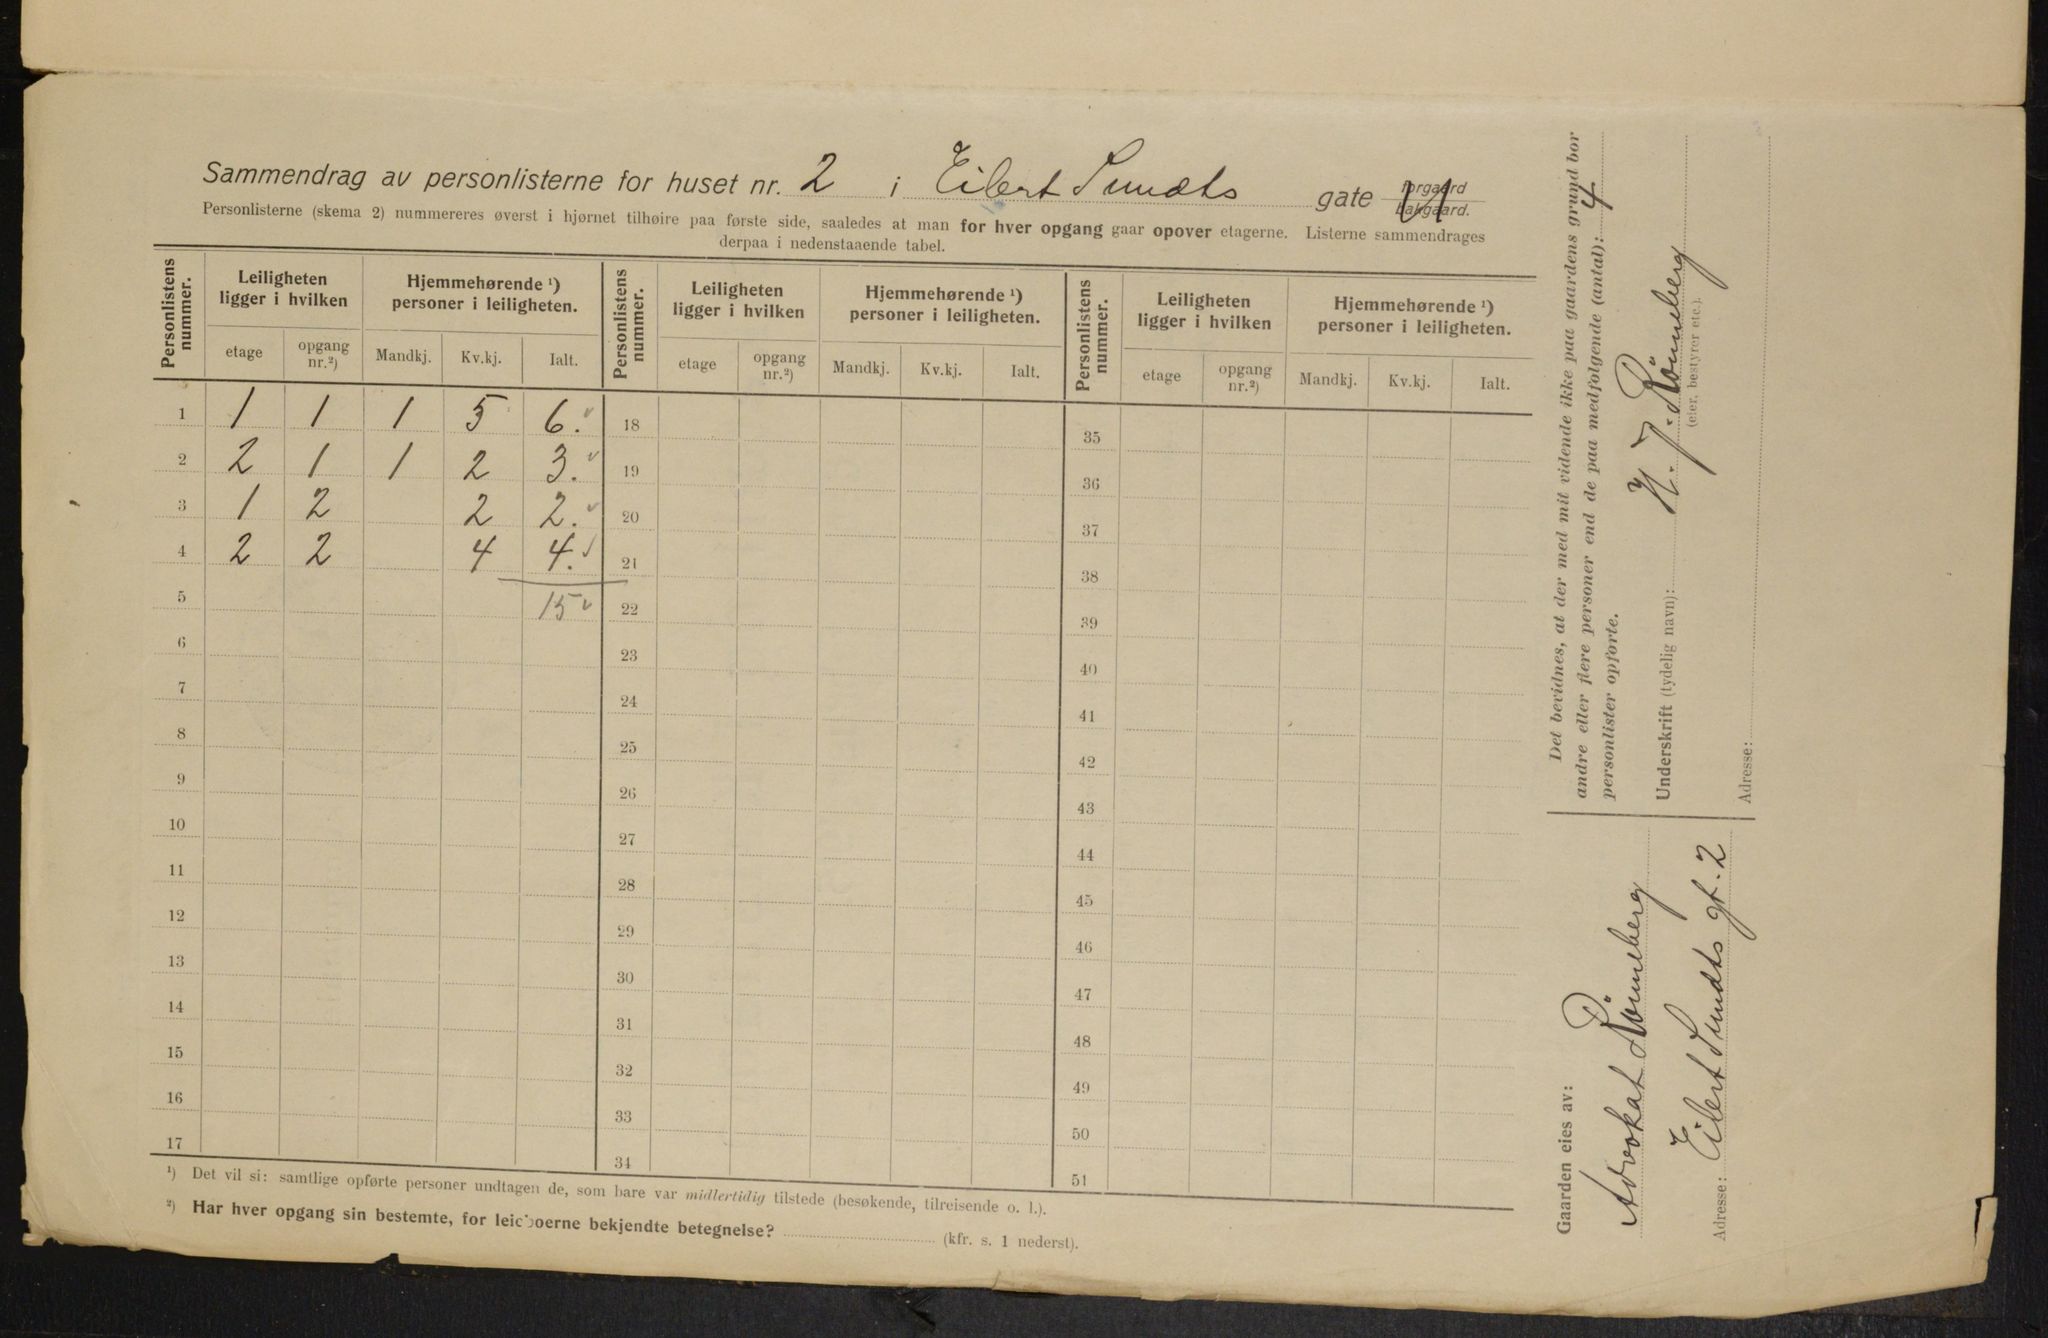 Sammendrag av personlisterne for huset nr. 2 i Eilert Sundts gate forgaard bakgaard.
Personlisterne (skema 2) nummereres øverst i hjørnet tilhøire paa første side, saaledes at man for hver opgang gaar opover etagerne. Listerne sammendrages
derpaa i nedenstaaende tabel.
Personlistens nummer. Leiligheten ligger i hvilken Hjemmehørende ¹) personer i leiligheten. Personlistens nummer. Leiligheten ligger i hvilken Hjemmehørende ¹) personer i leiligheten. Personlistens nummer. Leiligheten ligger i hvilken Hjemmehørende ¹) personer i leiligheten.
etage opgang nr.²) Mandkj. Kv.kj. Ialt. etage opgang nr.²) Mandkj. Kv.kj. Ialt. etage opgang nr.²) Mandkj. Kv.kj. Ialt.
1 1 1 1 5 6. 18 35
2 2 1 1 2 3. 19 36
3 1 2 2 2. 20 37
4 2 2 4 4. 21 38
5 15 22 39
6 23 40
7 24 41
8 25 42
9 26 43
10 27 44
11 28 45
12 29 46
13 30 47
14 31 48
15 32 49
16 33 50
17 34 51
¹) Det vil si: samtlige opførte personer undtagen de, som bare var midlertidig tilstede (besøkende, tilreisende o. l.).
²) Har hver opgang sin bestemte, for leieboerne bekjendte betegnelse? (kfr. s. 1 nederst).
Det bevidnes, at der med mit vidende ikke paa gaardens grund bor
andre eller flere personer end de paa medfølgende (antal): 4
personlister opførte.
Underskrift (tydelig navn): H. J. Rönneberg
(eier, bestyrer etc.).
Adresse:
Gaarden eies av:
Advokat Rönneberg
Adresse: Eilert Sundts gt. 2